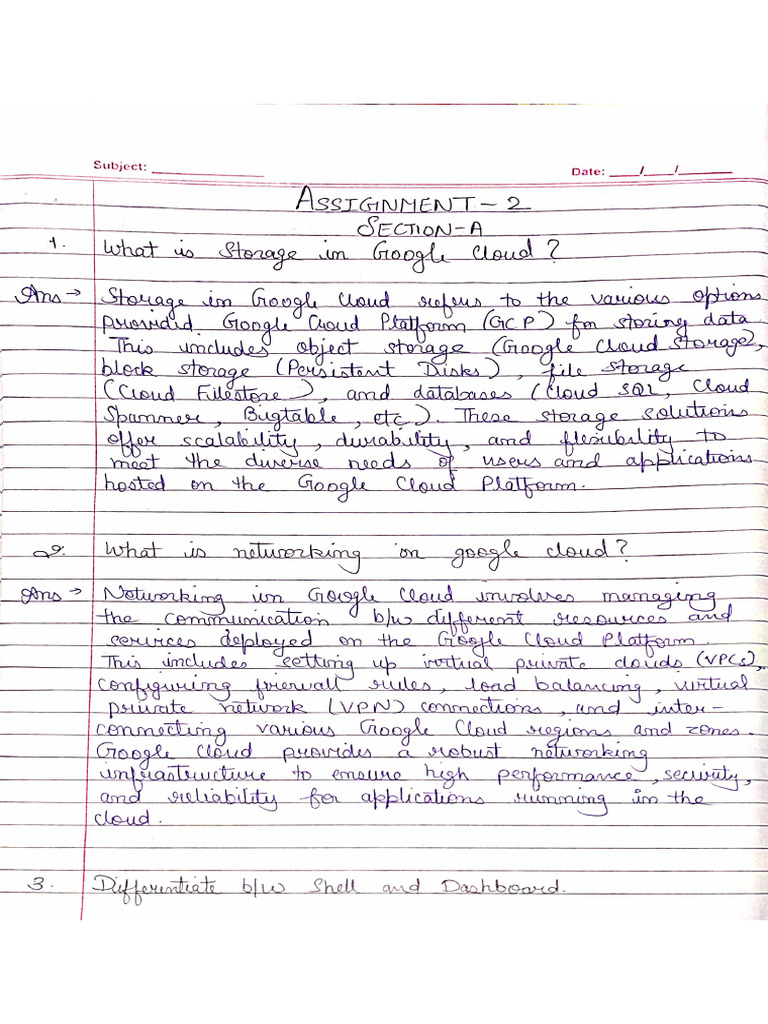 Subject: ____________
Date: ___/___/______
ASSIGNMENT-2
SECTION-A
1. What is Storage in Google Cloud?
Ans → Storage in Google Cloud refers to the various options
provided. Google Cloud Platform (GCP) for storing data
This includes object storage (Google Cloud Storage),
block storage (Persistent Disks), file storage
(Cloud Filestore), and databases (Cloud SQL, Cloud
Spanner, Bigtable, etc). These storage solutions
offer scalability, durability, and flexibility to
meet the diverse needs of users and applications
hosted on the Google Cloud Platform.
2. What is networking in google cloud?
Ans → Networking in Google Cloud involves managing
the communication b/w different resources and
services deployed on the Google Cloud Platform.
This includes setting up virtual private clouds (VPCs),
configuring firewall rules, load balancing, virtual
private network (VPN) connections, and inter-
connecting various Google Cloud regions and zones.
Google Cloud provides a robust networking
infrastructure to ensure high performance, security,
and reliability for applications running in the
cloud.
3. Differentiate b/w Shell and Dashboard.